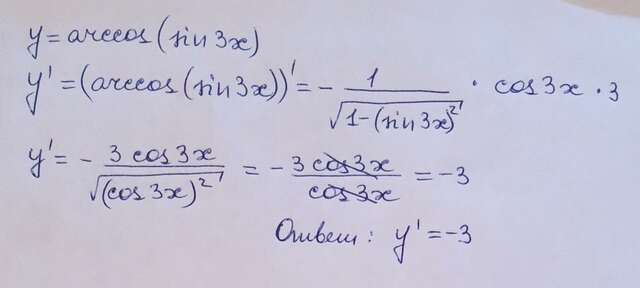 y = arccos(sin 3x)
y' = (arccos(sin 3x))' = - 1/√(1-(sin 3x)²) · cos 3x · 3
y' = - 3 cos 3x/√((cos 3x)²) = - 3 cos 3x/cos 3x = -3
Ответ: y' = -3